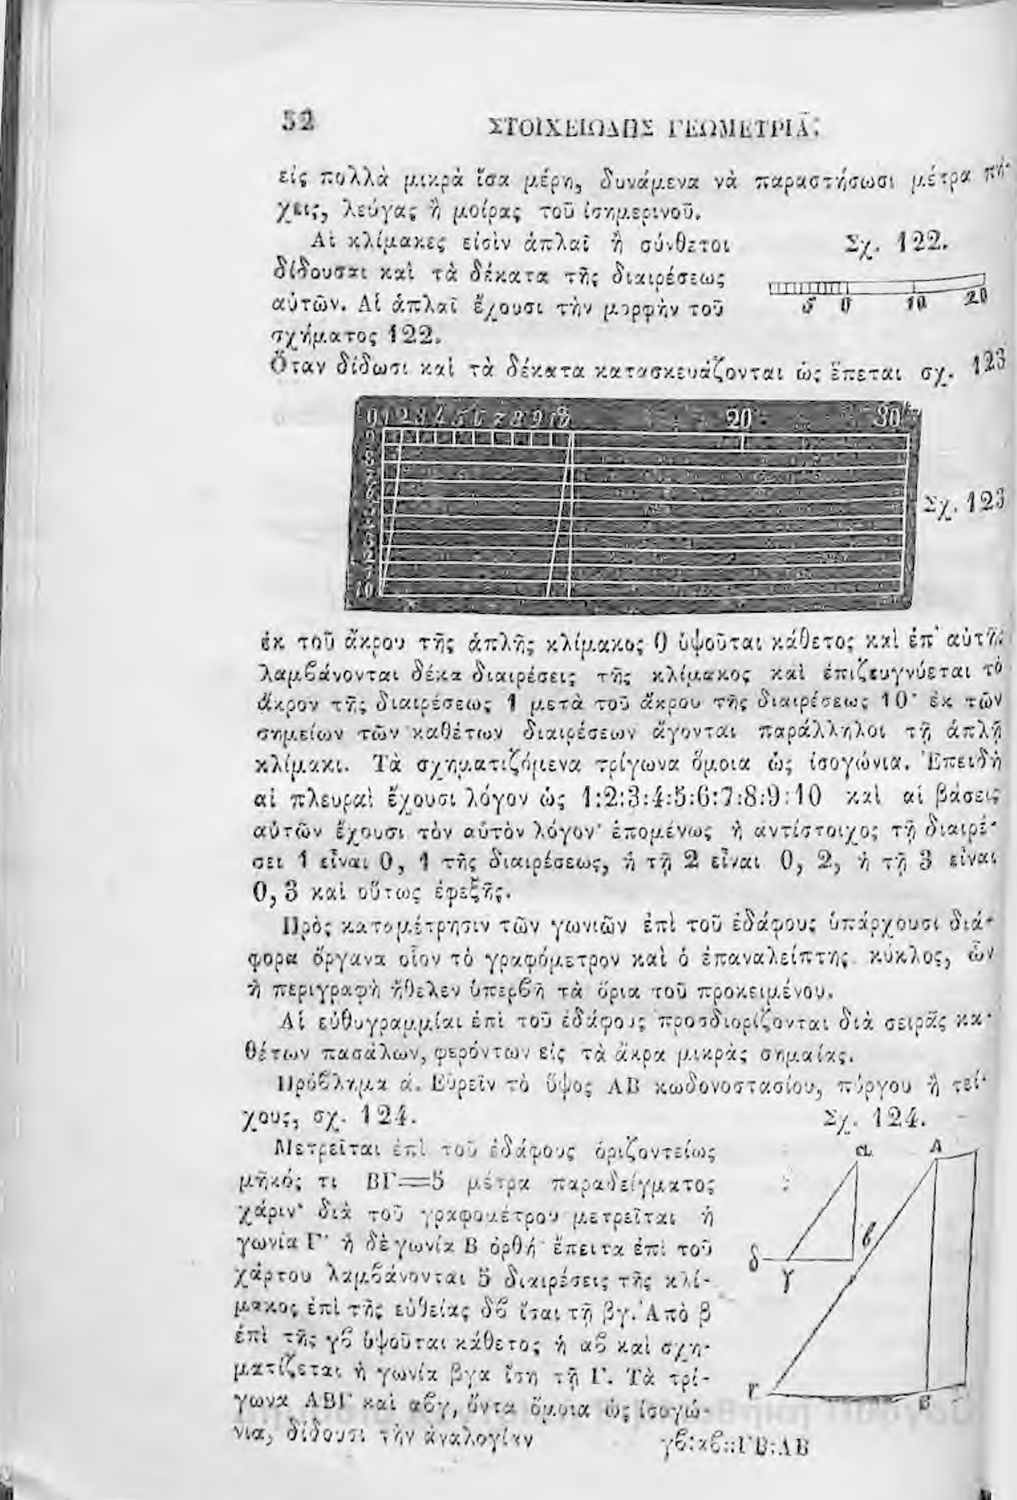 52 ΣΤΟΙΧΕΙΩΔΗΣ ΓΕΩΜΕΤΡΙΑ.
εἰς πολλὰ μικρὰ ἴσα μέρη, δυνάμενα νὰ παραστήσωσι μέτρα πή-
χεις, λεύγας ἢ μοίρας τοῦ ἰσημερινοῦ.
Αἱ κλίμακες εἰσὶν ἁπλαῖ ἢ σύνθετοι
δίδουσαι καὶ τὰ δέκατα τῆς διαιρέσεως
αὐτῶν. Αἱ ἁπλαῖ ἔχουσι τὴν μορφὴν τοῦ
σχήματος 122.
Σχ. 122.
5 0 10 20
Ὅταν δίδωσι καὶ τὰ δέκατα κατασκευάζονται ὡς ἕπεται σχ. 123
0 1 2 3 4 5 6 7 8 9 10 20 30
Σχ. 123
ἐκ τοῦ ἄκρου τῆς ἁπλῆς κλίμακος 0 ὑψοῦται κάθετος καὶ ἐπ' αὐτῆς
λαμβάνονται δέκα διαιρέσεις τῆς κλίμακος καὶ ἐπιζευγνύεται τὸ
ἄκρον τῆς διαιρέσεως 1 μετὰ τοῦ ἄκρου τῆς διαιρέσεως 10· ἐκ τῶν
σημείων τῶν καθέτων διαιρέσεων ἄγονται παράλληλοι τῇ ἁπλῇ
κλίμακι. Τὰ σχηματιζόμενα τρίγωνα ὅμοια ὡς ἰσογώνια. Ἐπειδὴ
αἱ πλευραὶ ἔχουσι λόγον ὡς 1:2:3:4:5:6:7:8:9:10 καὶ αἱ βάσεις
αὐτῶν ἔχουσι τὸν αὐτὸν λόγον· ἑπομένως ἡ ἀντίστοιχος τῇ διαιρέ-
σει 1 εἶναι 0, 1 τῆς διαιρέσεως, ἡ τῇ 2 εἶναι 0, 2, ἡ τῇ 3 εἶναι
0, 3 καὶ οὕτως ἐφεξῆς.
Πρὸς καταμέτρησιν τῶν γωνιῶν ἐπὶ τοῦ ἐδάφους ὑπάρχουσι διά-
φορα ὄργανα οἷον τὸ γραφόμετρον καὶ ὁ ἐπαναλείπτης κύκλος, ὧν
ἡ περιγραφὴ ἤθελεν ὑπερβῆ τὰ ὅρια τοῦ προκειμένου.
Αἱ εὐθυγραμμίαι ἐπὶ τοῦ ἐδάφους προσδιορίζονται διὰ σειρᾶς κα-
θέτων πασάλων, φερόντων εἰς τὰ ἄκρα μικρὰς σημαίας.
Πρόβλημα ά. Εὑρεῖν τὸ ὕψος ΑΒ κωδονοστασίου, πύργου ἢ τεί-
χους, σχ. 124.
Σχ. 124.
Μετρεῖται ἐπὶ τοῦ ἐδάφους ὁριζοντείως
μῆκός τι ΒΓ=5 μέτρα παραδείγματος
χάριν· διὰ τοῦ γραφομέτρου μετρεῖται ἡ
γωνία Γ· ἡ δὲ γωνία Β ὀρθή· ἔπειτα ἐπὶ τοῦ
χάρτου λαμβάνονται 5 διαιρέσεις τῆς κλί-
μακος ἐπὶ τῆς εὐθείας δβ ἴσαι τῇ βγ. Ἀπὸ β
ἐπὶ τῆς γβ ὑψοῦται κάθετος ἡ αβ καὶ σχη-
ματίζεται ἡ γωνία βγα ἴση τῇ Γ. Τὰ τρί-
γωνα ΑΒΓ καὶ αβγ, ὄντα ὅμοια ὡς ἰσογώ-
νια, δίδουσι τὴν ἀναλογίαν γβ:αβ::ΓΒ:ΑΒ
α Α
δ γ β
Γ Β